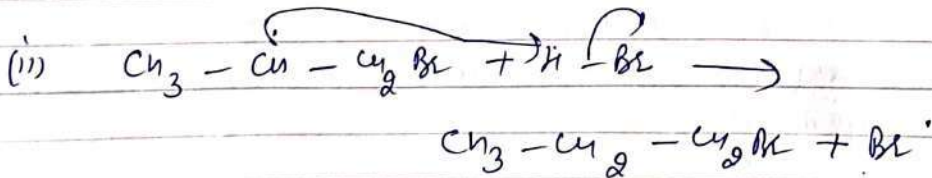 (ii) CH₃ - ĊH - CH₂Br + H - Br ⟶
CH₃ - CH₂ - CH₂Br + Br˙